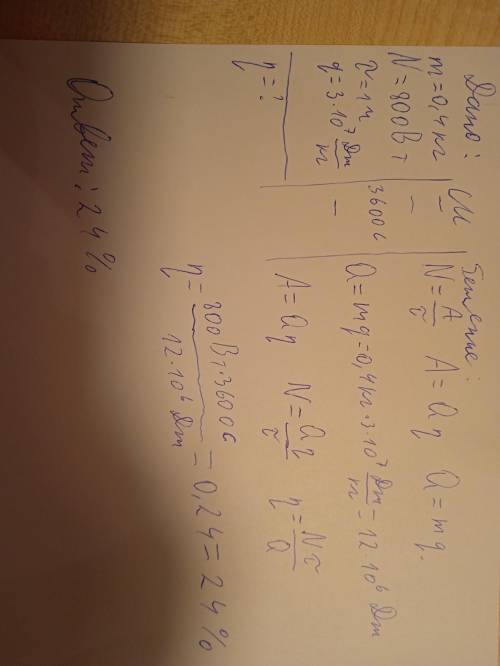 Дано:
m=0,4кг
N=800Вт
τ=1ч
q=3·10⁷ Дж/кг
η=?
СИ
–
–
3600с
–
Решение:
N=A/τ A=Qη Q=mq.
Q=mq=0,4кг·3·10⁷ Дж/кг=12·10⁶ Дж
A=Qη N=Qη/τ η=Nτ/Q
η=800Вт·3600с/12·10⁶ Дж=0,24=24%
Ответ: 24%